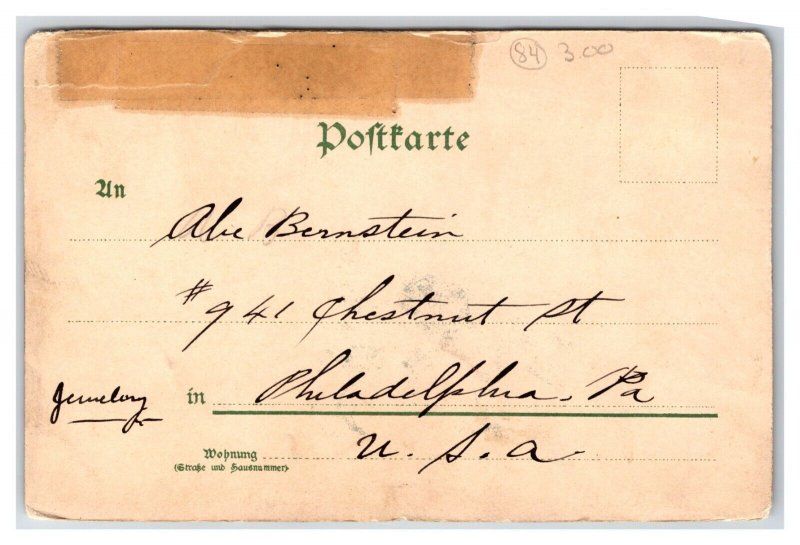 84 3.00
Postkarte
An
Abe Bernstein
# 941 Chestnut St
Jewelory
in Philadelphia. Pa
Wohnung
(Straße und Hausnummer)
U. S. a